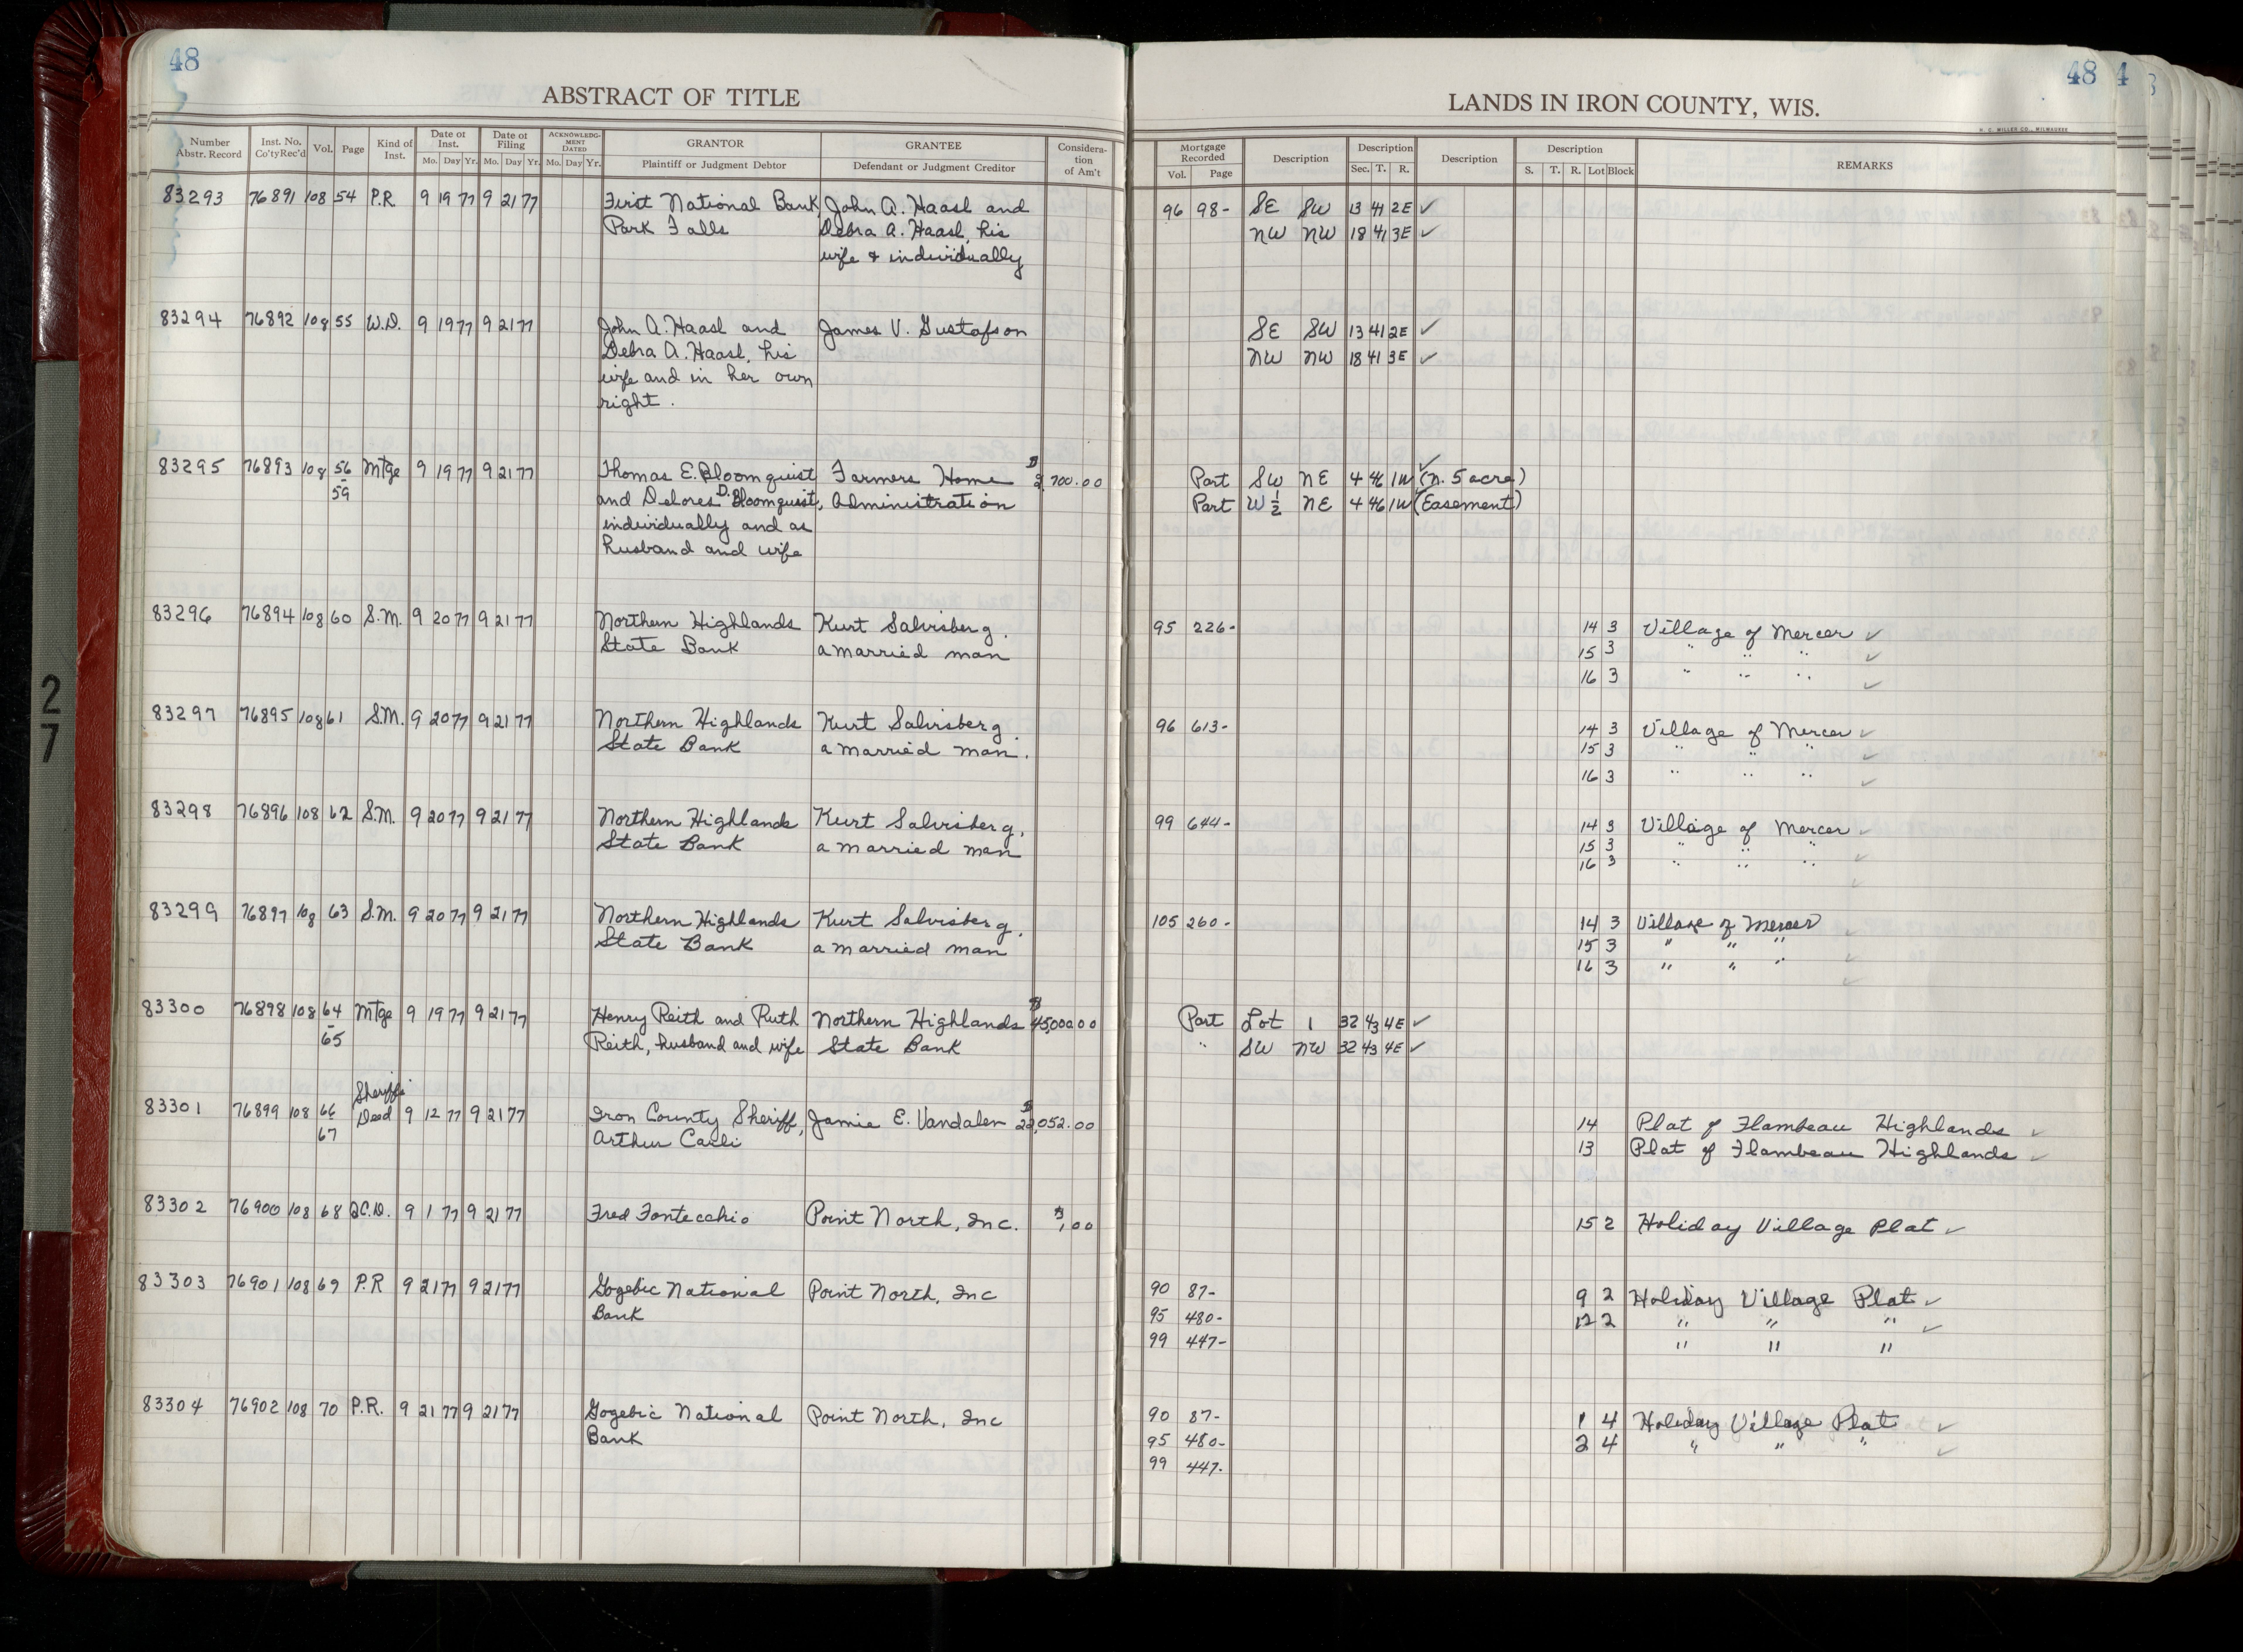 48
ABSTRACT OF TITLE
Number Abstr. Record | Inst. No. Co'ty Rec'd | Vol. | Page | Kind of Inst. | Date of Inst. Mo. Day Yr. | Date of Filing Mo. Day Yr. | ACKNOWLEDGMENT DATED Mo. Day Yr. | GRANTOR Plaintiff or Judgment Debtor | GRANTEE Defendant or Judgment Creditor | Consideration of Am't
83293 76891 108 54 P.R. 9 19 77 9 21 77 First National Bank John A. Haasl and
Park Falls Debra A. Haasl, his
wife & individually
83294 76892 108 55 W.D. 9 19 77 9 21 77 John A. Haasl and James V. Gustafson
Debra A. Haasl, his
wife and in her own
right.
83295 76893 108 56-59 Mtge 9 19 77 9 21 77 Thomas E. Bloomquist Farmers Home $ 2,700.00
and Delores D. Bloomquist, Administration
individually and as
husband and wife
83296 76894 108 60 S.M. 9 20 77 9 21 77 Northern Highlands Kurt Salvisberg,
State Bank a married man
83297 76895 108 61 S.M. 9 20 77 9 21 77 Northern Highlands Kurt Salvisberg,
State Bank a married man.
83298 76896 108 62 S.M. 9 20 77 9 21 77 Northern Highlands Kurt Salvisberg,
State Bank a married man
83299 76897 108 63 S.M. 9 20 77 9 21 77 Northern Highlands Kurt Salvisberg,
State Bank a married man
83300 76898 108 64-65 Mtge 9 19 77 9 21 77 Henry Reith and Ruth Northern Highlands $ 45,000.00
Reith, husband and wife State Bank
83301 76899 108 66 67 Sheriff's Deed 9 12 77 9 21 77 Iron County Sheriff, Jamie E. Vandalen $ 22,052.00
Arthur Carli
83302 76900 108 68 Q.C.D. 9 1 77 9 21 77 Fred Fontecchio Point North, Inc. $ 1.00
83303 76901 108 69 P.R 9 21 77 9 21 77 Gogebic National Point North, Inc
Bank
83304 76902 108 70 P.R. 9 21 77 9 21 77 Gogebic National Point North, Inc
Bank
27
48
4
LANDS IN IRON COUNTY, WIS.
H. C. MILLER CO., MILWAUKEE
Mortgage Recorded Vol. Page | Description | Description Sec. T. R. | Description | Description S. T. R. Lot Block | REMARKS
96 98- SE SW 13 41 2E ✓
NW NW 18 41 3E ✓
SE SW 13 41 2E ✓
NW NW 18 41 3E ✓
Part SW NE 4 46 1W (N. 5 acre) ✓
Part W ½ NE 4 46 1W (Easement)
95 226- 14 3 Village of Mercer ✓
15 3 " " " ✓
16 3 " " " ✓
96 613- 14 3 Village of Mercer ✓
15 3 " " " ✓
16 3 " " " ✓
99 644- 14 3 Village of Mercer ✓
15 3 " " " ✓
16 3 " " " ✓
105 260- 14 3 Village of Mercer ✓
15 3 " " " ✓
16 3 " " " ✓
Part Lot 1 32 43 4E ✓
" SW NW 32 43 4E ✓
14 Plat of Flambeau Highlands ✓
13 Plat of Flambeau Highlands ✓
15 2 Holiday Village Plat ✓
90 87- 9 2 Holiday Village Plat ✓
95 480- 12 2 " " " ✓
99 447- " " "
90 87- 1 4 Holiday Village Plat ✓
95 480- 2 4 " " " ✓
99 447-